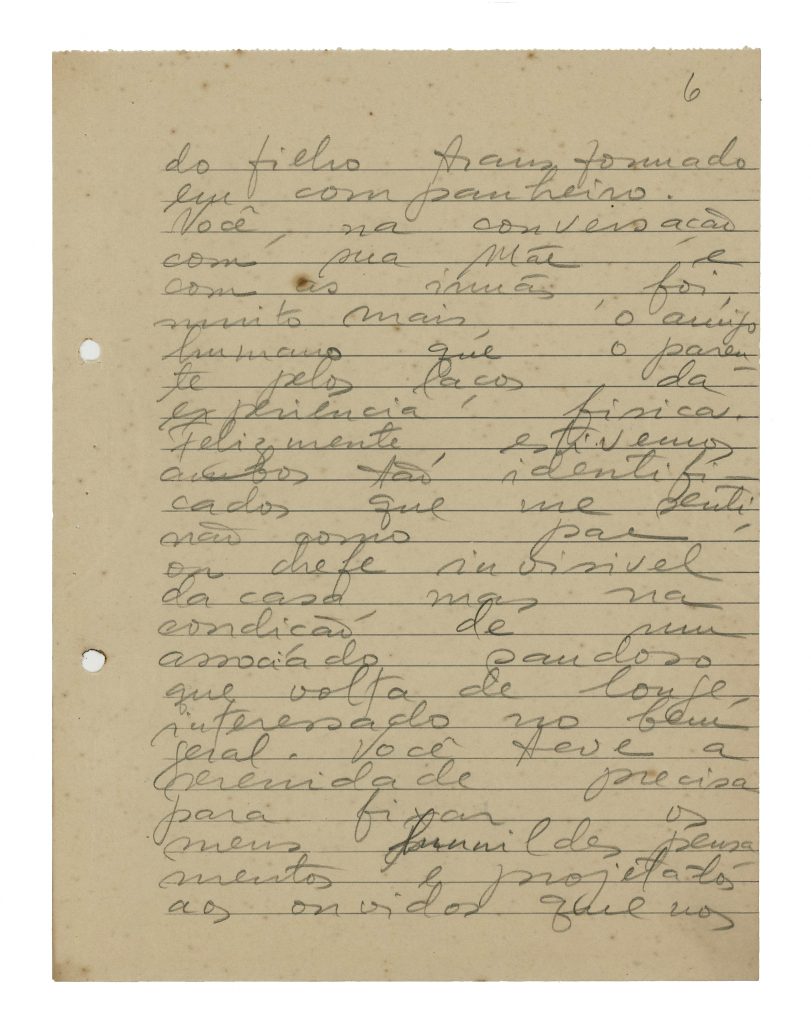 6
do filho transformado
em companheiro.
Você, na conversação
com sua Mãe e
com as irmãs foi,
muito mais, o amigo
humano que o paren-
te pelos laços da
experiência física.
Felizmente, estivemos
ambos tão identifi-
cados que me senti
não como pae
ou chefe invisivel
da casa, mas na
condição de um
associado saudoso
que volta de longe,
interessado no bem
geral. Você teve a
serenidade precisa
para fixar os
meus humildes pensa
mentos e projetá-los
aos ouvidos que nos